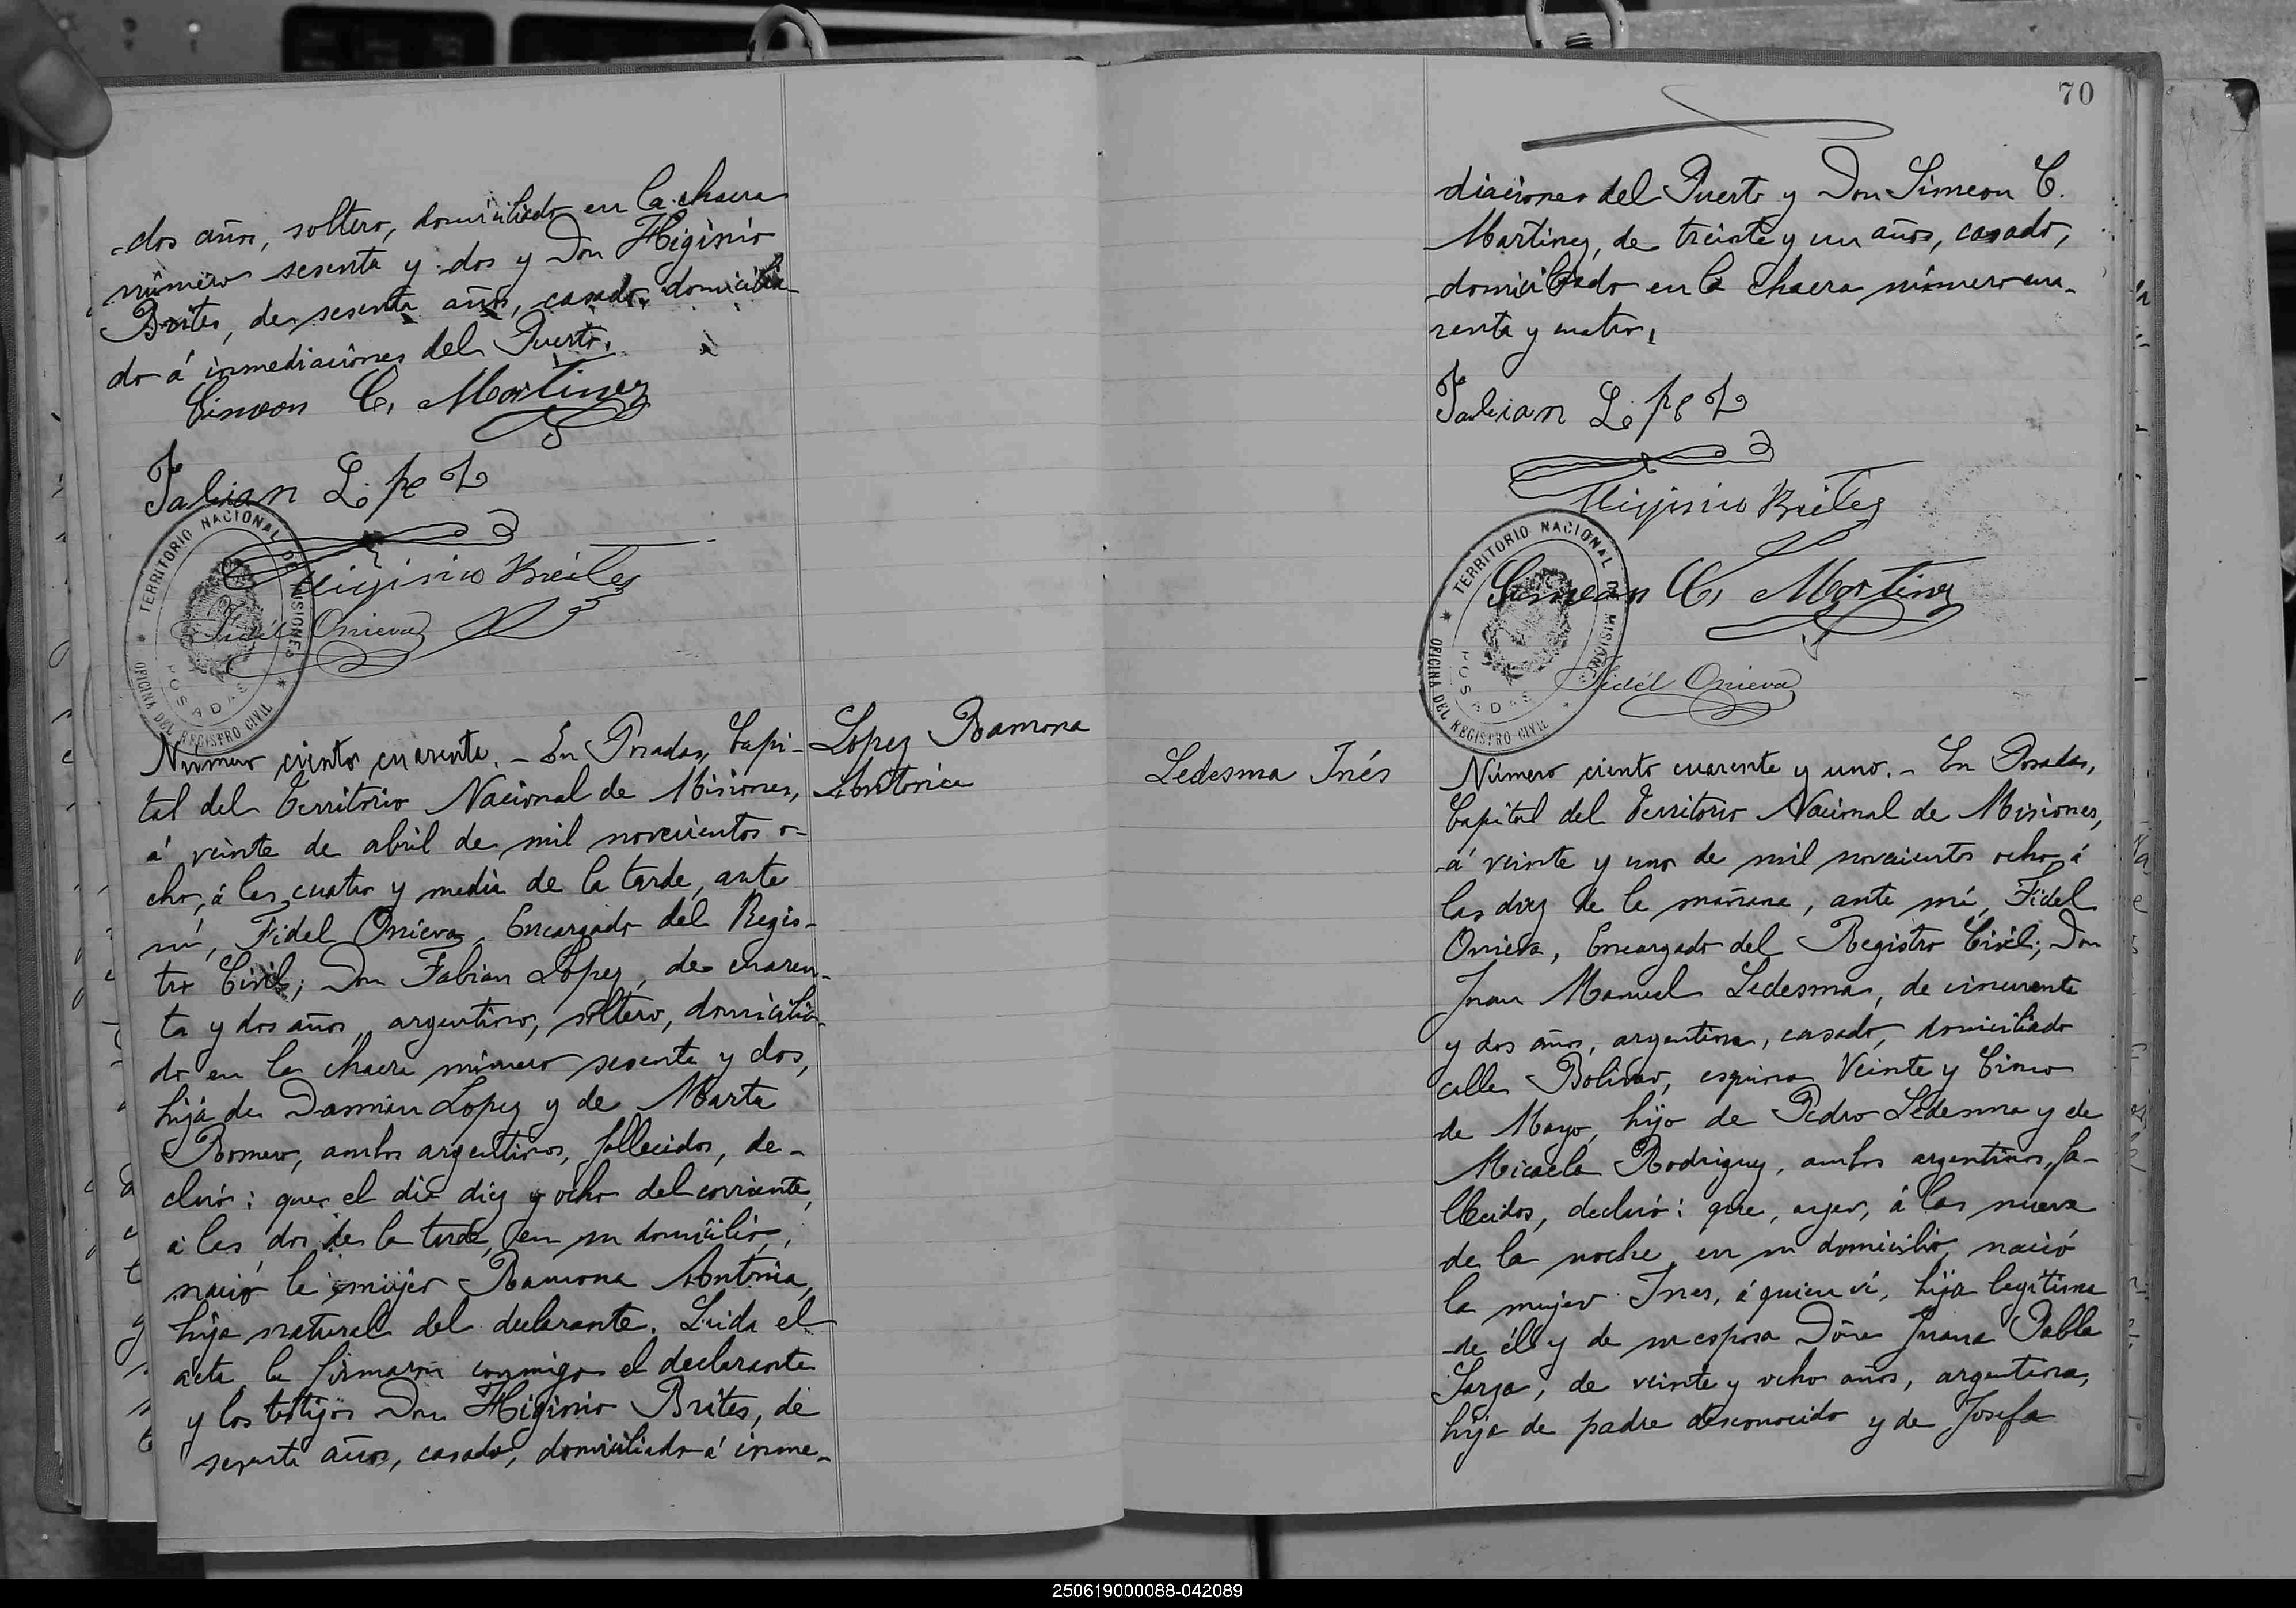 dos años, soltero, domiciliado en la chacra
número sesenta y dos y Don Higinio
Brites, de sesenta años, casado, domicilia-
do á inmediaciones del Puerto.
Simeon C. Martinez
Fabian Lopez
Higinio Brites
Fidél Onieva
TERRITORIO NACIONAL DE MISIONES
OFICINA DEL REGISTRO CIVIL
POSADAS
Lopez Ramona
Antonia
Número ciento cuarenta. - En Posadas, Capi-
tal del Territorio Nacional de Misiones,
á veinte de abril de mil novecientos o-
cho, á las cuatro y media de la tarde, ante
mí, Fidel Onieva, Encargado del Regis-
tro Civil; Don Fabian Lopez, de cuaren-
ta y dos años, argentino, soltero, domicilia-
do en la chacra número sesenta y dos,
hijo de Damian Lopez y de Marta
Romero, ambos argentinos, fallecidos, de-
claró: que el dia diez y ocho del corriente,
á las dos de la tarde, en su domicilio,
nació la mujer Ramona Antonia,
hija natural del declarante. Leida el
acta la firmaron conmigo el declarante
y los testigos Don Higinio Brites, de
sesenta años, casado, domiciliado á inme-
70
diaciones del Puerto y Don Simeon C.
Martinez, de treinta y un años, casado,
domiciliado en la chacra número cua-
renta y cuatro.
Fabian Lopez
Higinio Brites
Simeon C. Martinez
Fidél Onieva
TERRITORIO NACIONAL DE MISIONES
OFICINA DEL REGISTRO CIVIL
POSADAS
Ledesma Inés
Número ciento cuarenta y uno. - En Posadas,
Capital del Territorio Nacional de Misiones,
á veinte y uno de mil novecientos ocho, á
las diez de la mañana, ante mí, Fidel
Onieva, Encargado del Registro Civil; Don
Juan Manuel Ledesma, de cincuenta
y dos años, argentino, casado, domiciliado
calle Bolivar, esquina Veinte y Cinco
de Mayo, hijo de Pedro Ledesma y de
Micaela Rodriguez, ambos argentinos, fa-
llecidos, declaró: que, ayer, á las nueve
de la noche, en su domicilio, nació
la mujer Ines, á quien ví, hija legítima
de él y de su esposa Doña Juana Pabla
Sarza, de veinte y ocho años, argentina,
hija de padre desconocido y de Josefa
250619000088-042089